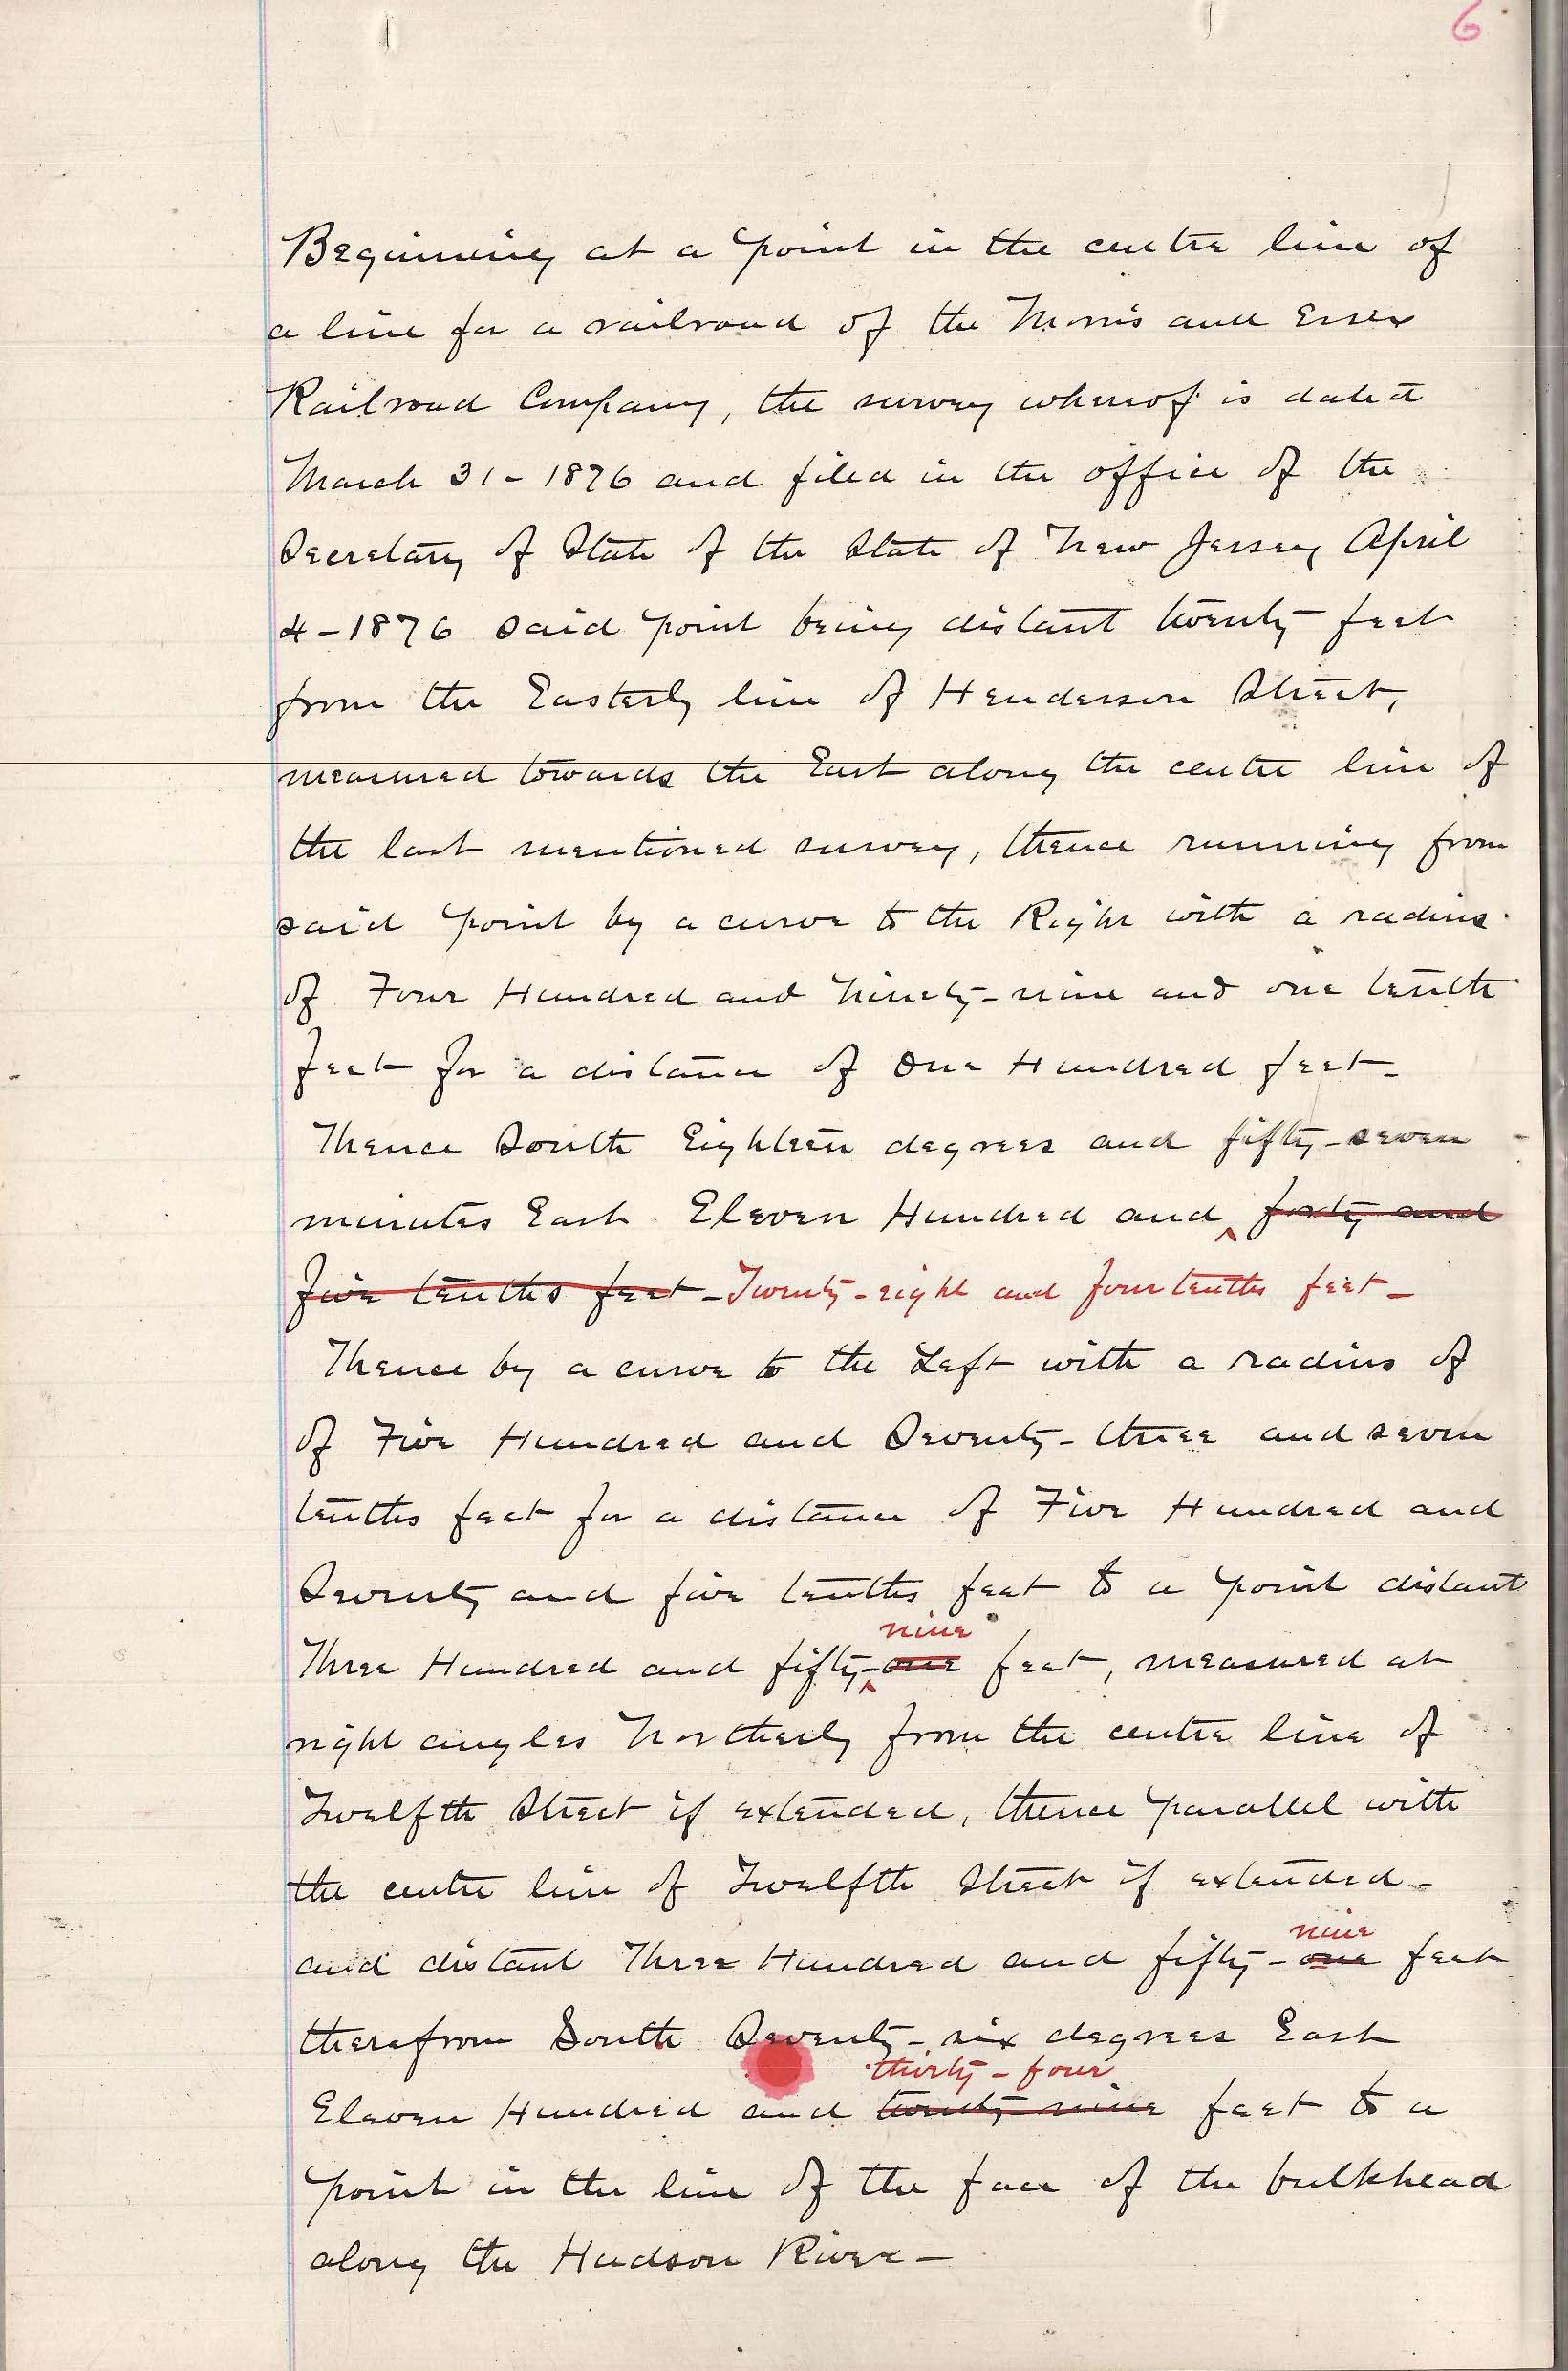 6
Beginning at a point in the centre line of
a line for a railroad of the Morris and Essex
Railroad Company, the survey whereof is dated
March 31 - 1876 and filed in the office of the
Secretary of State of the State of New Jersey April
4 - 1876 said point being distant twenty feet
from the Easterly line of Henderson Street,
measured towards the East along the centre line of
the last mentioned survey, thence running from
said point by a curve to the Right with a radius
of Four Hundred and Ninety-nine and one tenth
feet for a distance of One Hundred feet -
Thence South Eighteen degrees and fifty-seven
minutes East Eleven Hundred and ‸ forty and
five tenths feet - Twenty-eight and four tenths feet -
Thence by a curve to the Left with a radius of
of Five Hundred and Seventy-three and seven
tenths feet for a distance of Five Hundred and
Seventy and five tenths feet to a point distant
nine
Three Hundred and fifty-‸one feet, measured at
right angles Northerly from the centre line of
Twelfth Street if extended, thence parallel with
the centre line of Twelfth Street if extended -
nine
and distant Three Hundred and fifty-one feet
therefrom South Seventy-six degrees East
thirty-four
Eleven Hundred and twenty-nine feet to a
point in the line of the face of the bulkhead
along the Hudson River -